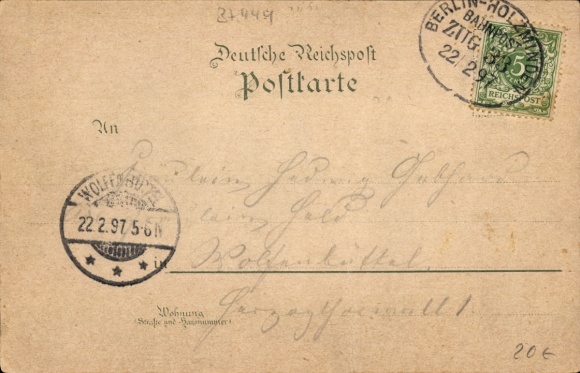 27449
BERLIN-HOLZMINDEN
BAHNPOST
ZUG 33
22 2 97
5
REICHSPOST
Deutsche Reichspost
Postkarte
An
Fräulein Hedwig Gebhard
WOLFENBÜTTEL
22.2.97.5-6N
in Wolfenbüttel.
Wohnung
(Straße und Hausnummer)
20€